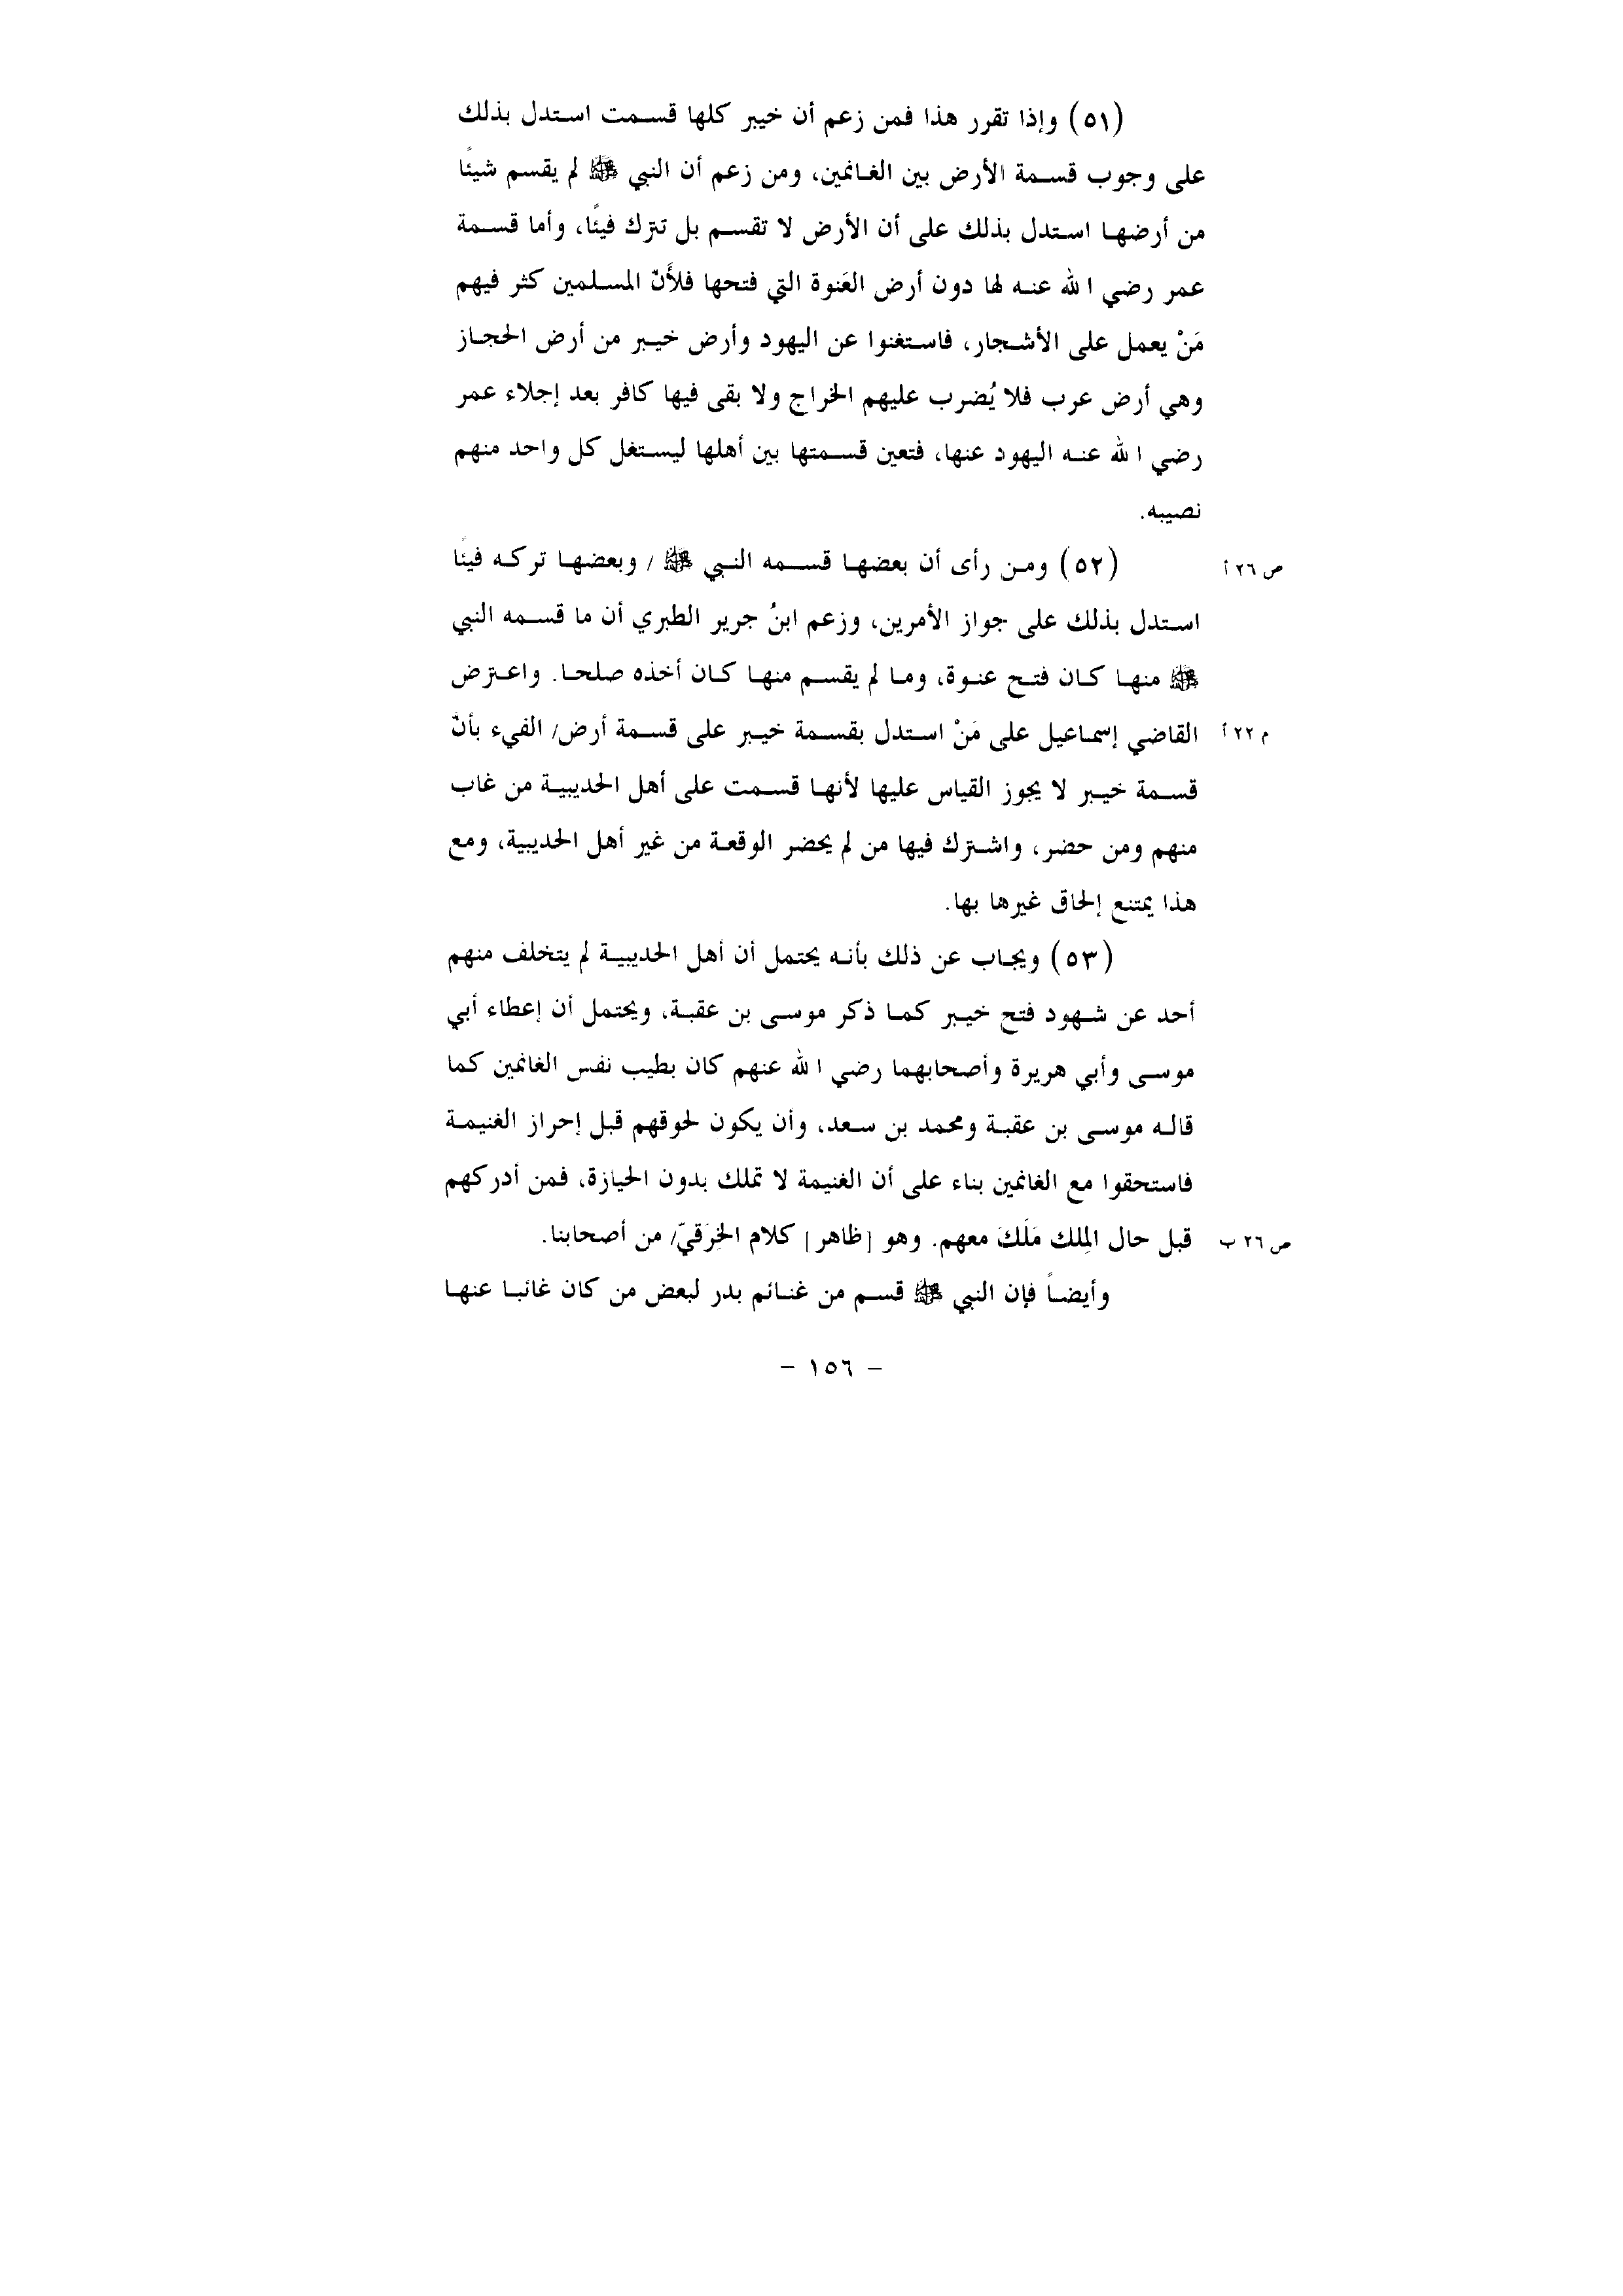 (٥١) وإذا تقرر هذا فمن زعم أن خيبر كلها قسمت استدل بذلك
على وجوب قسمة الأرض بين الغانمين، ومن زعم أن النبي ﷺ لم يقسم شيئًا
من أرضها استدل بذلك على أن الأرض لا تقسم بل تترك فيئًا، وأما قسمة
عمر رضي الله عنه لها دون أرض العَنوة التي فتحها فلأَنّ المسلمين كثر فيهم
مَنْ يعمل على الأشجار، فاستغنوا عن اليهود وأرض خيبر من أرض الحجاز
وهي أرض عرب فلا يُضرب عليهم الخراج ولا بقى فيها كافر بعد إجلاء عمر
رضي الله عنه اليهود عنها، فتعين قسمتها بين أهلها ليستغل كل واحد منهم
نصيبه.
(٥٢) ومن رأى أن بعضها قسمه النبي ﷺ / وبعضها تركه فيئًا
ص ٢٦ أ
استدل بذلك على جواز الأمرين، وزعم ابنُ جرير الطبري أن ما قسمه النبي
ﷺ منها كان فتح عنوة، وما لم يقسم منها كان أخذه صلحا. واعترض
القاضي إسماعيل على مَنْ استدل بقسمة خيبر على قسمة أرض/ الفيء بأنّ
م ٢٢ أ
قسمة خيبر لا يجوز القياس عليها لأنها قسمت على أهل الحديبية من غاب
منهم ومن حضر، واشترك فيها من لم يحضر الوقعة من غير أهل الحديبية، ومع
هذا يمتنع إلحاق غيرها بها.
(٥٣) ويجاب عن ذلك بأنه يحتمل أن أهل الحديبية لم يتخلف منهم
أحد عن شهود فتح خيبر كما ذكر موسى بن عقبة، ويحتمل أن إعطاء أبي
موسى وأبي هريرة وأصحابهما رضي الله عنهم كان بطيب نفس الغانمين كما
قاله موسى بن عقبة ومحمد بن سعد، وأن يكون لحوقهم قبل إحراز الغنيمة
فاستحقوا مع الغانمين بناء على أن الغنيمة لا تملك بدون الحيازة، فمن أدركهم
قبل حال المِلك مَلَكَ معهم. وهو [ظاهر] كلام الخِرَقيّ/ من أصحابنا.
ص ٢٦ ب
وأيضاً فإن النبي ﷺ قسم من غنائم بدر لبعض من كان غائبا عنها
– ١٥٦ –